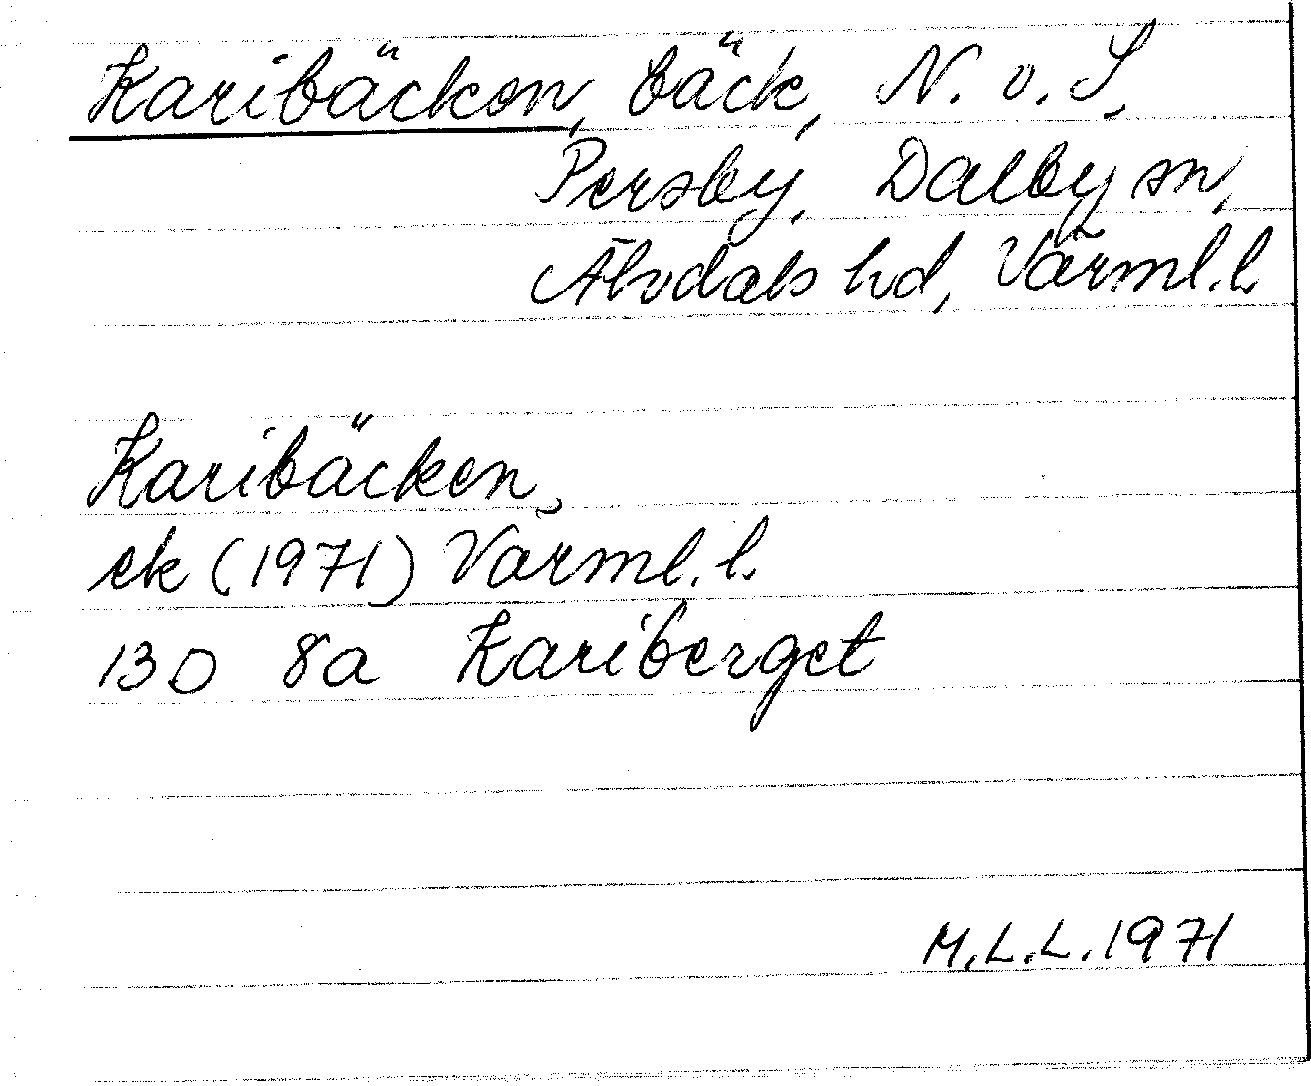 Karibäcken, bäck, N. o. S.
Persby, Dalby sn,
Älvdals hd, Värml. l.
Karibäcken,
ek (1971) Värml. l.
13D 8a Kariberget
M.L.L. 1971